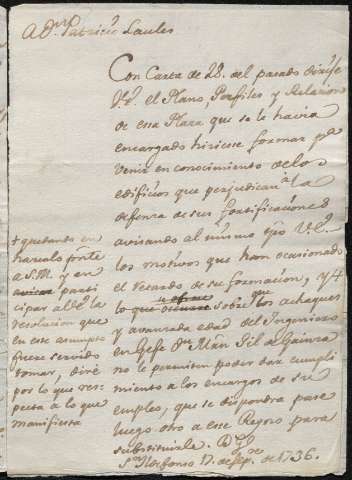 A Dn Patricio Laules
Con Carta de 28. del pasado dirije
V.E. el Plano, Perfiles y Relacion
de esa Plaza que se le havia
encargado hiciese formar pa
venir en conocimiento de los
edificios que perjudican â la
defensa de sus fortificacione
avisando al mismo tpo V.E.
los motivos que han ocasionado
el retardo de su formacion, y +
lo que sobre que los achaques
y avanzada edad del Ingeniero
en Gefe Dn Juan Gil de Gainza
no le permiten poder dar cumpli
miento a los encargos de su
empleo, que se dispondra pase
luego otro a ese Reyno para
substituirle. Ds gde
Sn Ildefonso 17. de sepre de 1736.
+ quedando en
hacerlo presnte
a S.M. y en
parti
cipar a V.E. la
resolucion que
en este asumpto
fuere servido
tomar, diré
por lo que res-
pecta a lo que
manifiesta